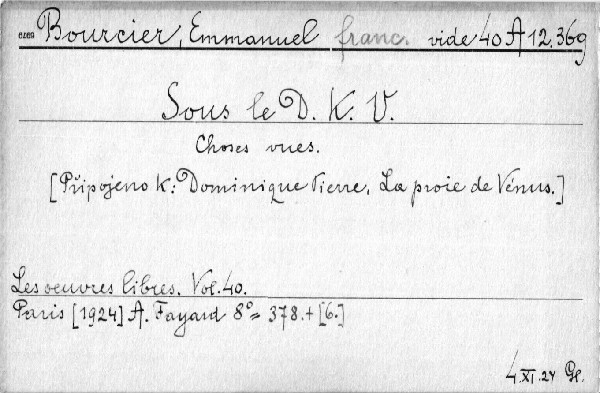 Bourcier, Emmanuel franc. vide 40 A 12,369
Sous le D. K. V.
Choses vues.
[Připojeno k: Dominique Pierre, La proie de Vénus.]
Les oeuvres libres. Vol. 40.
Paris [1924] A. Fayard 8° = 378. + [6.]
4.XI.24